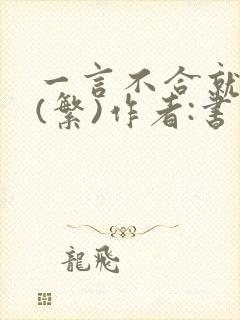 一言不合就
(繁)作者:書
龍飛